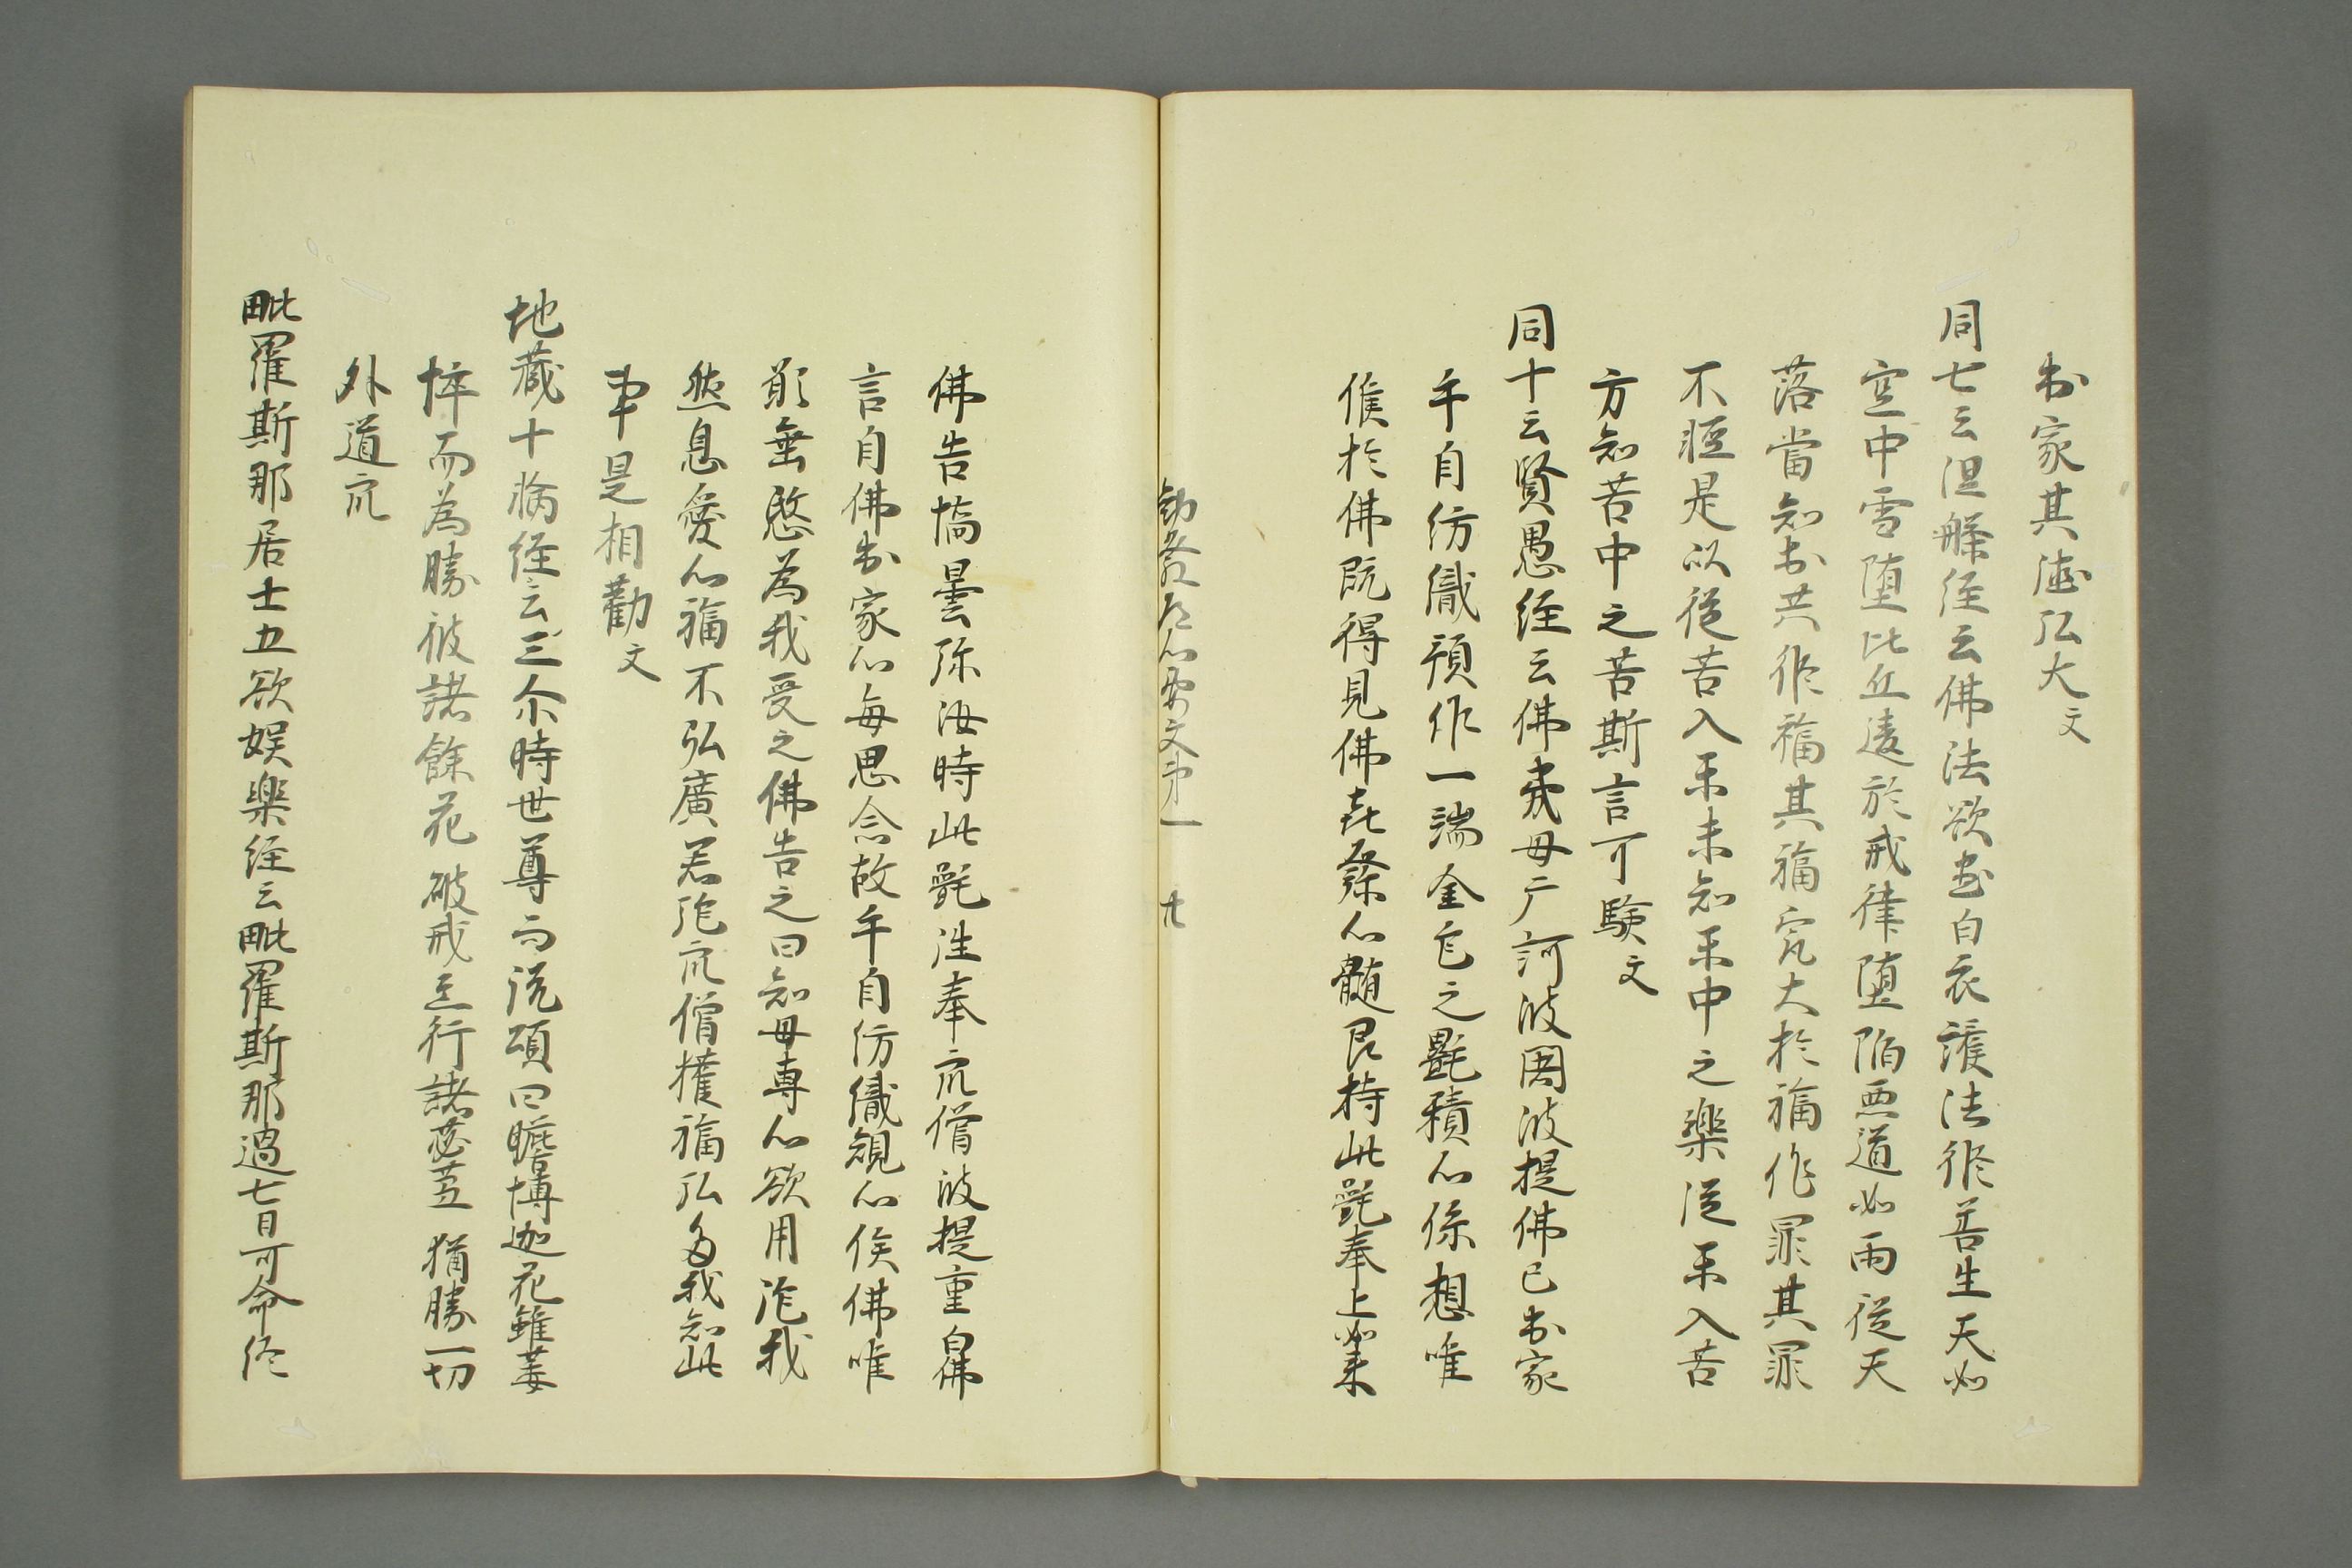 出家其德弘大文
同七云涅槃經云佛法欲盡白衣護法修善生天如
空中雪墮比丘違於戒律墮陷惡道如雨從天
落當知出共修福其福㝡大於福作罪其罪
不輕是以從苦入樂未知樂中之樂從樂入苦
方知苦中之苦斯言可驗文
同十云賢愚經云佛姨母广訶波闍波提佛已出家
手自紡織預作一端金色之㲲積心係想唯
俟於佛既得見佛喜發心髓即持此㲲奉上如來
勸發 心要文第一 九
佛告憍曇弥汝時此㲲往奉衆僧波提重白佛
言自佛出家心每思念故手自紡織規心俟佛唯
願垂愍為我受之佛告之曰知母專心欲用施我
然恩愛心福不弘廣若施衆僧獲福弘多我知此
事是相勸文
地藏十輪經云三尒時世尊而說頌曰瞻博迦花雖萎
悴而為勝彼諸餘花破戒惡行諸苾蒭猶勝一切
外道衆
毗羅斯那居士五欲娛樂經云毗羅斯那過七日可命終